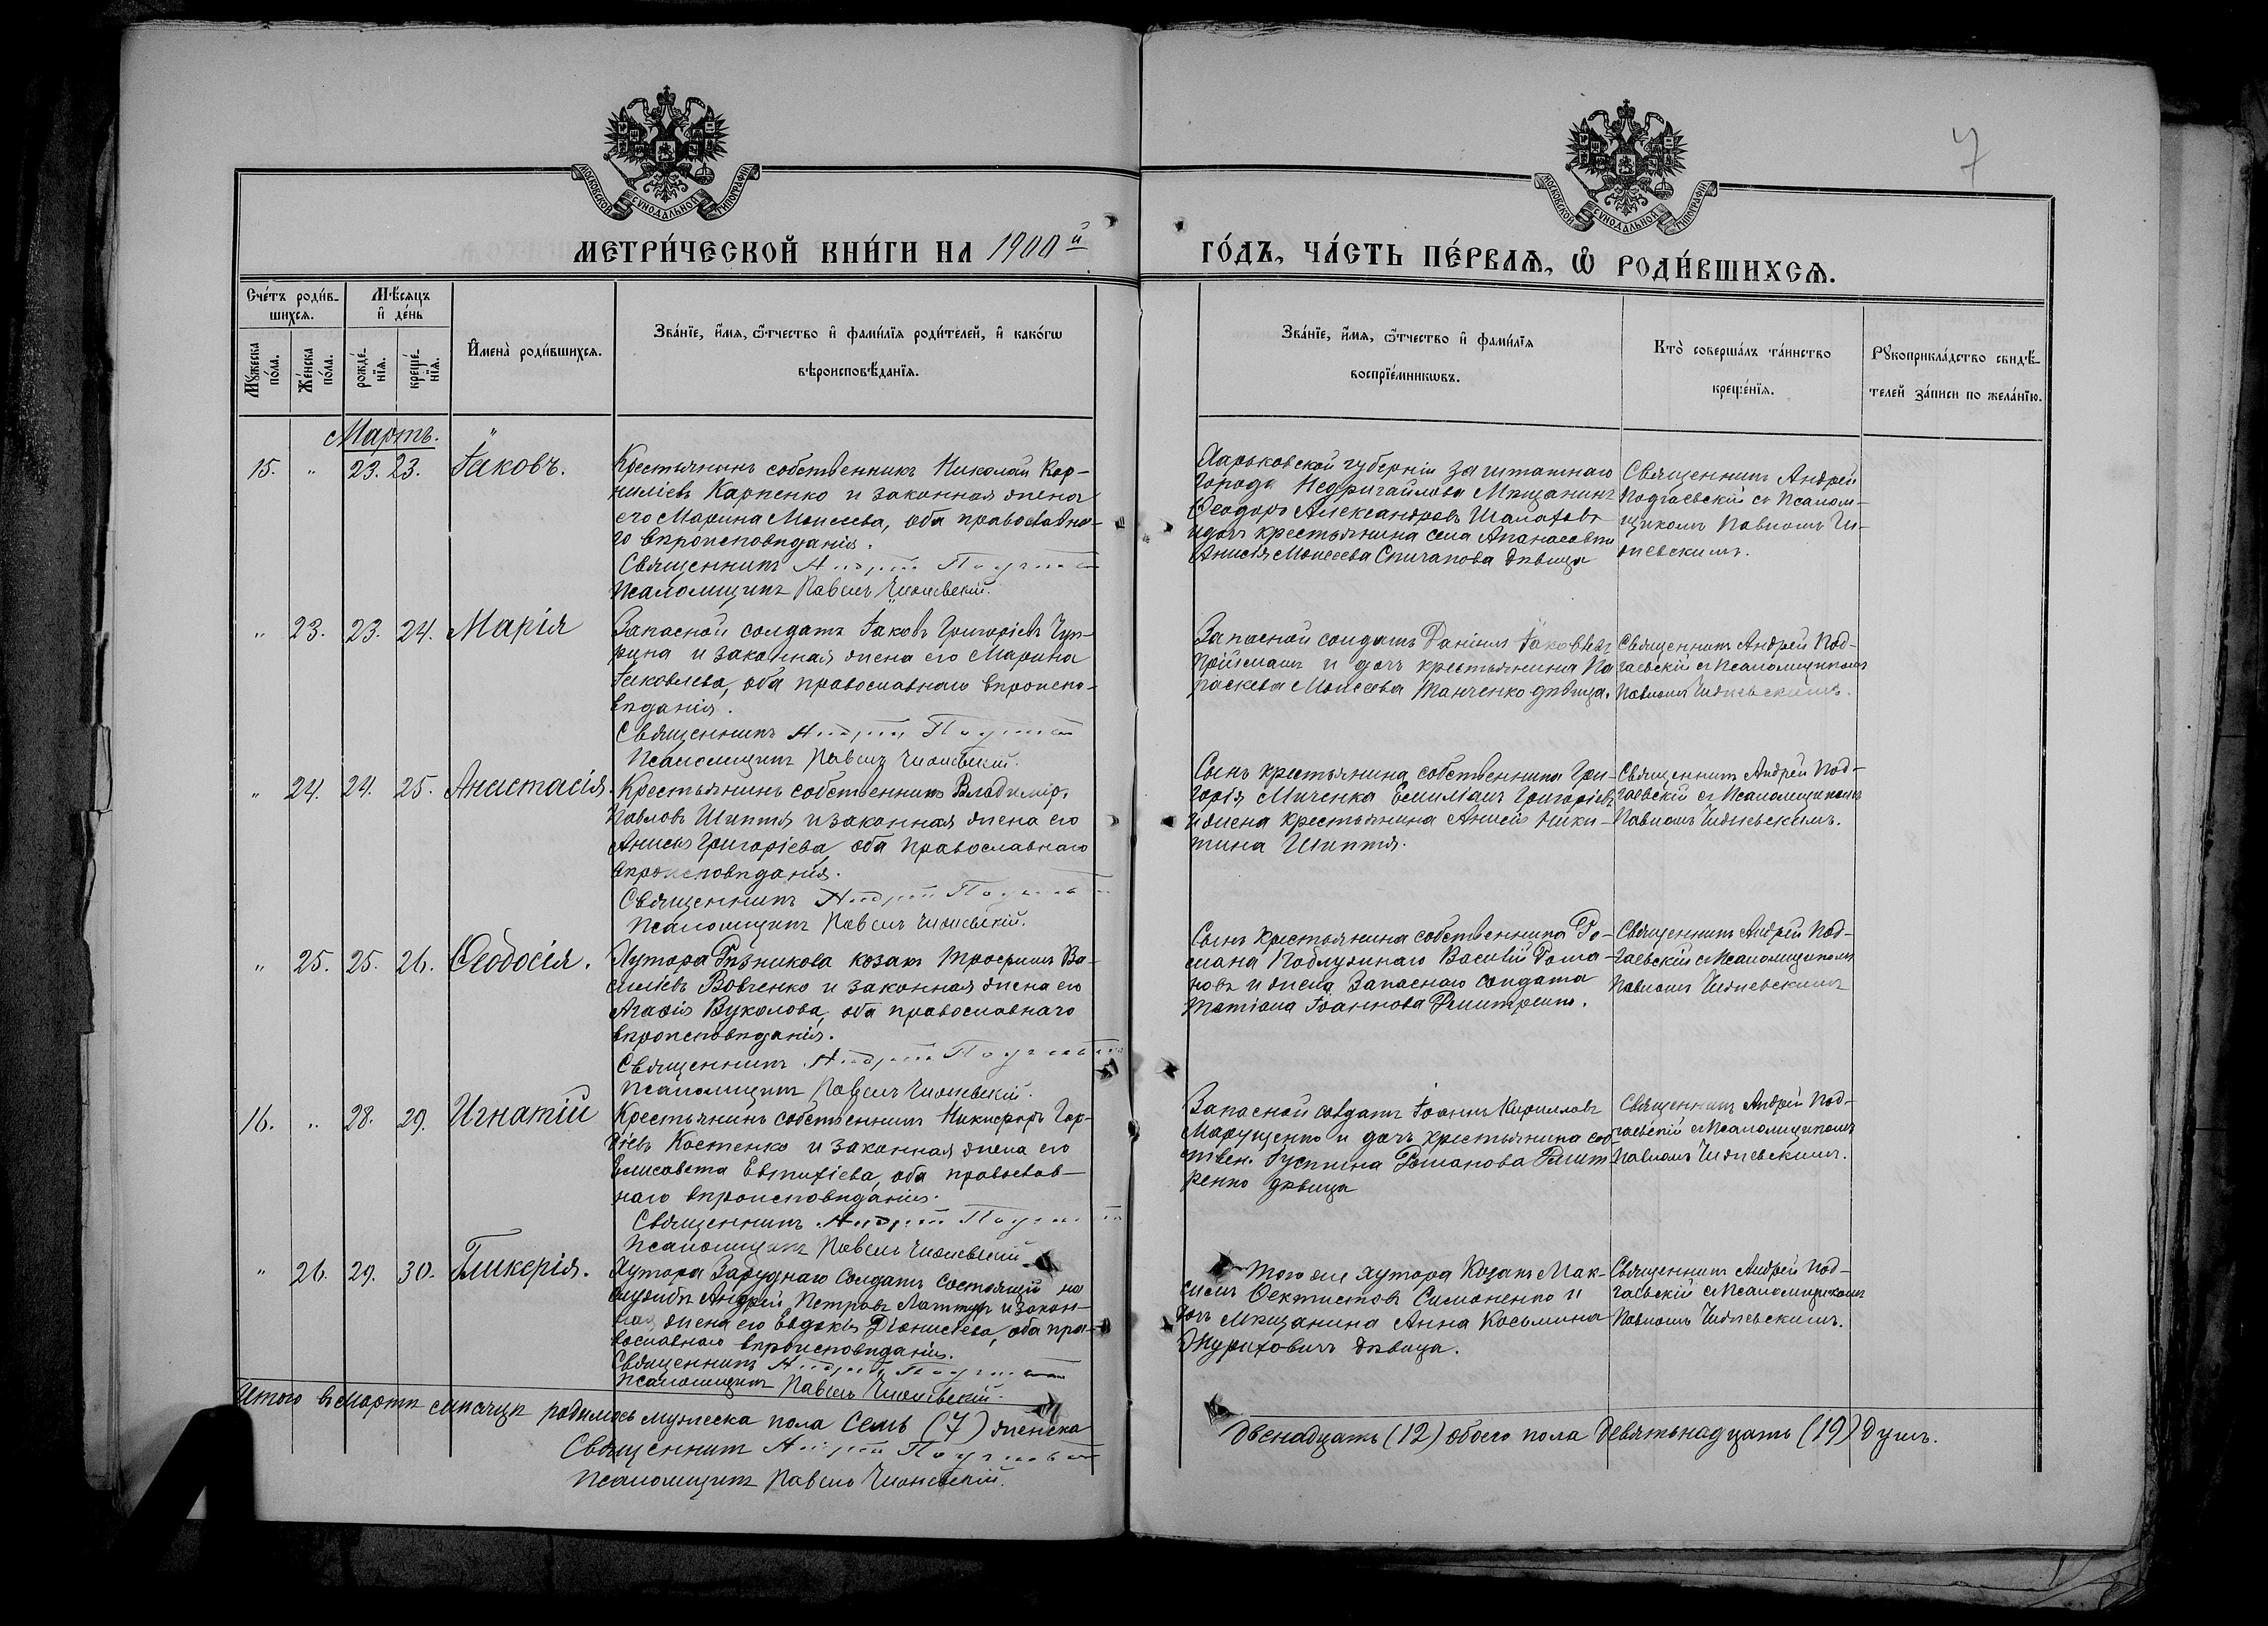 7
МОСКОВСКОЙ СѴНОДАЛЬНОЙ ТИПОГРАФІИ
МОСКОВСКОЙ СѴНОДАЛЬНОЙ ТИПОГРАФІИ
МЕТРИ́ЧЕСКОЙ КНИ́ГИ НА 1900й
ГО́ДЪ, ЧА́СТЬ ПЕ́РВАѦ, Ѡ РОДИ́ВШИХСѦ.
Сче́тъ роди́в-
шихсѧ.
Мꙋ́жеска по́ла.
Же́нска по́ла.
Мѣ́сѧцъ
и҆ де́нь
рожде́-
нїѧ.
креще́-
нїѧ.
И҆мена̀ роди́вшихсѧ.
Зва́нїе, и҆́мѧ, ѻ҆́тчество и҆ фами́лїѧ роди́телей, и҆ како́гѡ
вѣроисповѣ́данїѧ.
Зва́нїе, и҆́мѧ, ѻ҆́тчество и҆ фами́лїѧ
воспрїе́мникѡвъ.
Кто̀ соверша́лъ та́инство
креще́нїѧ.
Рꙋкоприкла́дство свидѣ́-
телей за́писи по жела́нїю.
Мартъ.
15. " 23. 23. Іаковъ.
Крестьянинъ собственникъ Николай Кор-
ниліевъ Карпенко и законная жена
его Марина Моисеева, оба православна-
го вѣроисповѣданія.
Священникъ Андрей
Псаломщикъ Павелъ Чижевскій.
Харьковской губерніи заштатнаго
города Недригайлова Мѣщанинъ
Ѳеодоръ Александровъ Шалаховъ
и дочь крестьянина села
Анисія Моисеева дѣвица
Священникъ Андрей
Подгаевскій съ Псалом-
щикомъ Павломъ Чи-
жевскимъ.
" 23. 23. 24. Марія
Запасной солдатъ Іаковъ Григорьевъ Чуп-
рина и законная жена его Марина
Іаковлева, оба православнаго вѣроиспо-
вѣданія.
Священникъ Андрей
Псаломщикъ Павелъ Чижевскій.
Запасной солдатъ Даніилъ Іаковлевъ
Пройсманъ и дочь крестьянина Па
раскева Моисеева Танченко дѣвица.
Священникъ Андрей Под-
гаевскій съ Псаломщикомъ
Павломъ Чижевскимъ.
" 24. 24. 25. Анастасія.
Крестьянинъ собственникъ Владиміръ
Павловъ Шиптя и законная жена его
Анисія Григоріева, оба православнаго
вѣроисповѣданія.
Священникъ Андрей
Псаломщикъ Павелъ Чижевскій.
Сынъ крестьянина собственника Гри-
горія Миченка Емиліанъ Григоріевъ
и жена крестьянина Анисія Ники-
тина Шиптя.
Священникъ Андрей Под-
гаевскій съ Псаломщикомъ
Павломъ Чижевскимъ.
" 25. 25. 26. Ѳеодосія.
Хутора Рѣзникова козакъ Трофимъ Ва-
силіевъ Вовченко и законная жена его
Агафія Вуколова, оба православнаго
вѣроисповѣданія.
Священникъ Андрей
Псаломщикъ Павелъ Чижевскій.
Сынъ крестьянина собственника Ро-
мана Василій Рома-
новъ и жена Запаснаго солдата
Татіана Іоаннова Дмитренко.
Священникъ Андрей Под-
гаевскій съ Псаломщикомъ
Павломъ Чижевскимъ
16. " 28. 29. Игнатій
Крестьянинъ собственникъ Никифоръ Гор-
діевъ Костенко и законная жена его
Елисавета Евтихіева, оба православ-
наго вѣроисповѣданія.
Священникъ Андрей
Псаломщикъ Павелъ Чижевскій
Запасной солдатъ Іоаннъ Кирилловъ
Марущенко и дочь крестьянина соб-
ствен. Іустина Романова Дмит
ренко дѣвица
Священникъ Андрей Под-
гаевскій съ Псаломщикомъ
Павломъ Чижевскимъ.
" 26. 29. 30. Гликерія.
Хутора Заруднаго Солдатъ состоящій на
службѣ Андрей Петровъ и закон-
ная жена его Евдокія Діонисіева, оба пра-
вославнаго вѣроисповѣданія.
Священникъ Андрей
Псаломщикъ Павелъ Чижевскій.
Того же хутора Козакъ Мак-
симъ Ѳектистовъ Симоненко и
дочь Мѣщанина Анна Косьмина
Журиховичъ дѣвица.
Священникъ Андрей Под-
гаевскій съ Псаломщикомъ
Павломъ Чижевскимъ.
Итого въ Мартѣ мѣсяцѣ родилось мужеска пола Семь (7) женска
Двенадцать (12) обоего пола Девятьнадцать (19) душъ.
Священникъ Андрей
Псаломщикъ Павелъ Чижевскій.